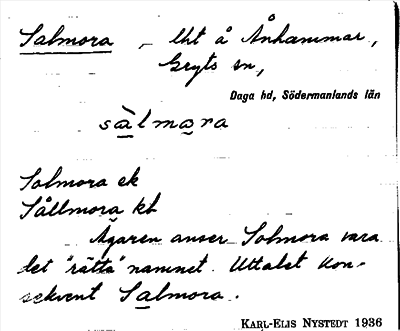 Salmora – lht å Ånhammar,
Gryts sn,
Daga hd, Södermanlands län
sàlmara
Solmora ek
Sållmora kb
Ägaren anser Solmora vara
det "rätta" namnet. Uttalet kon-
sekvent Salmora.
KARL-ELIS NYSTEDT 1936